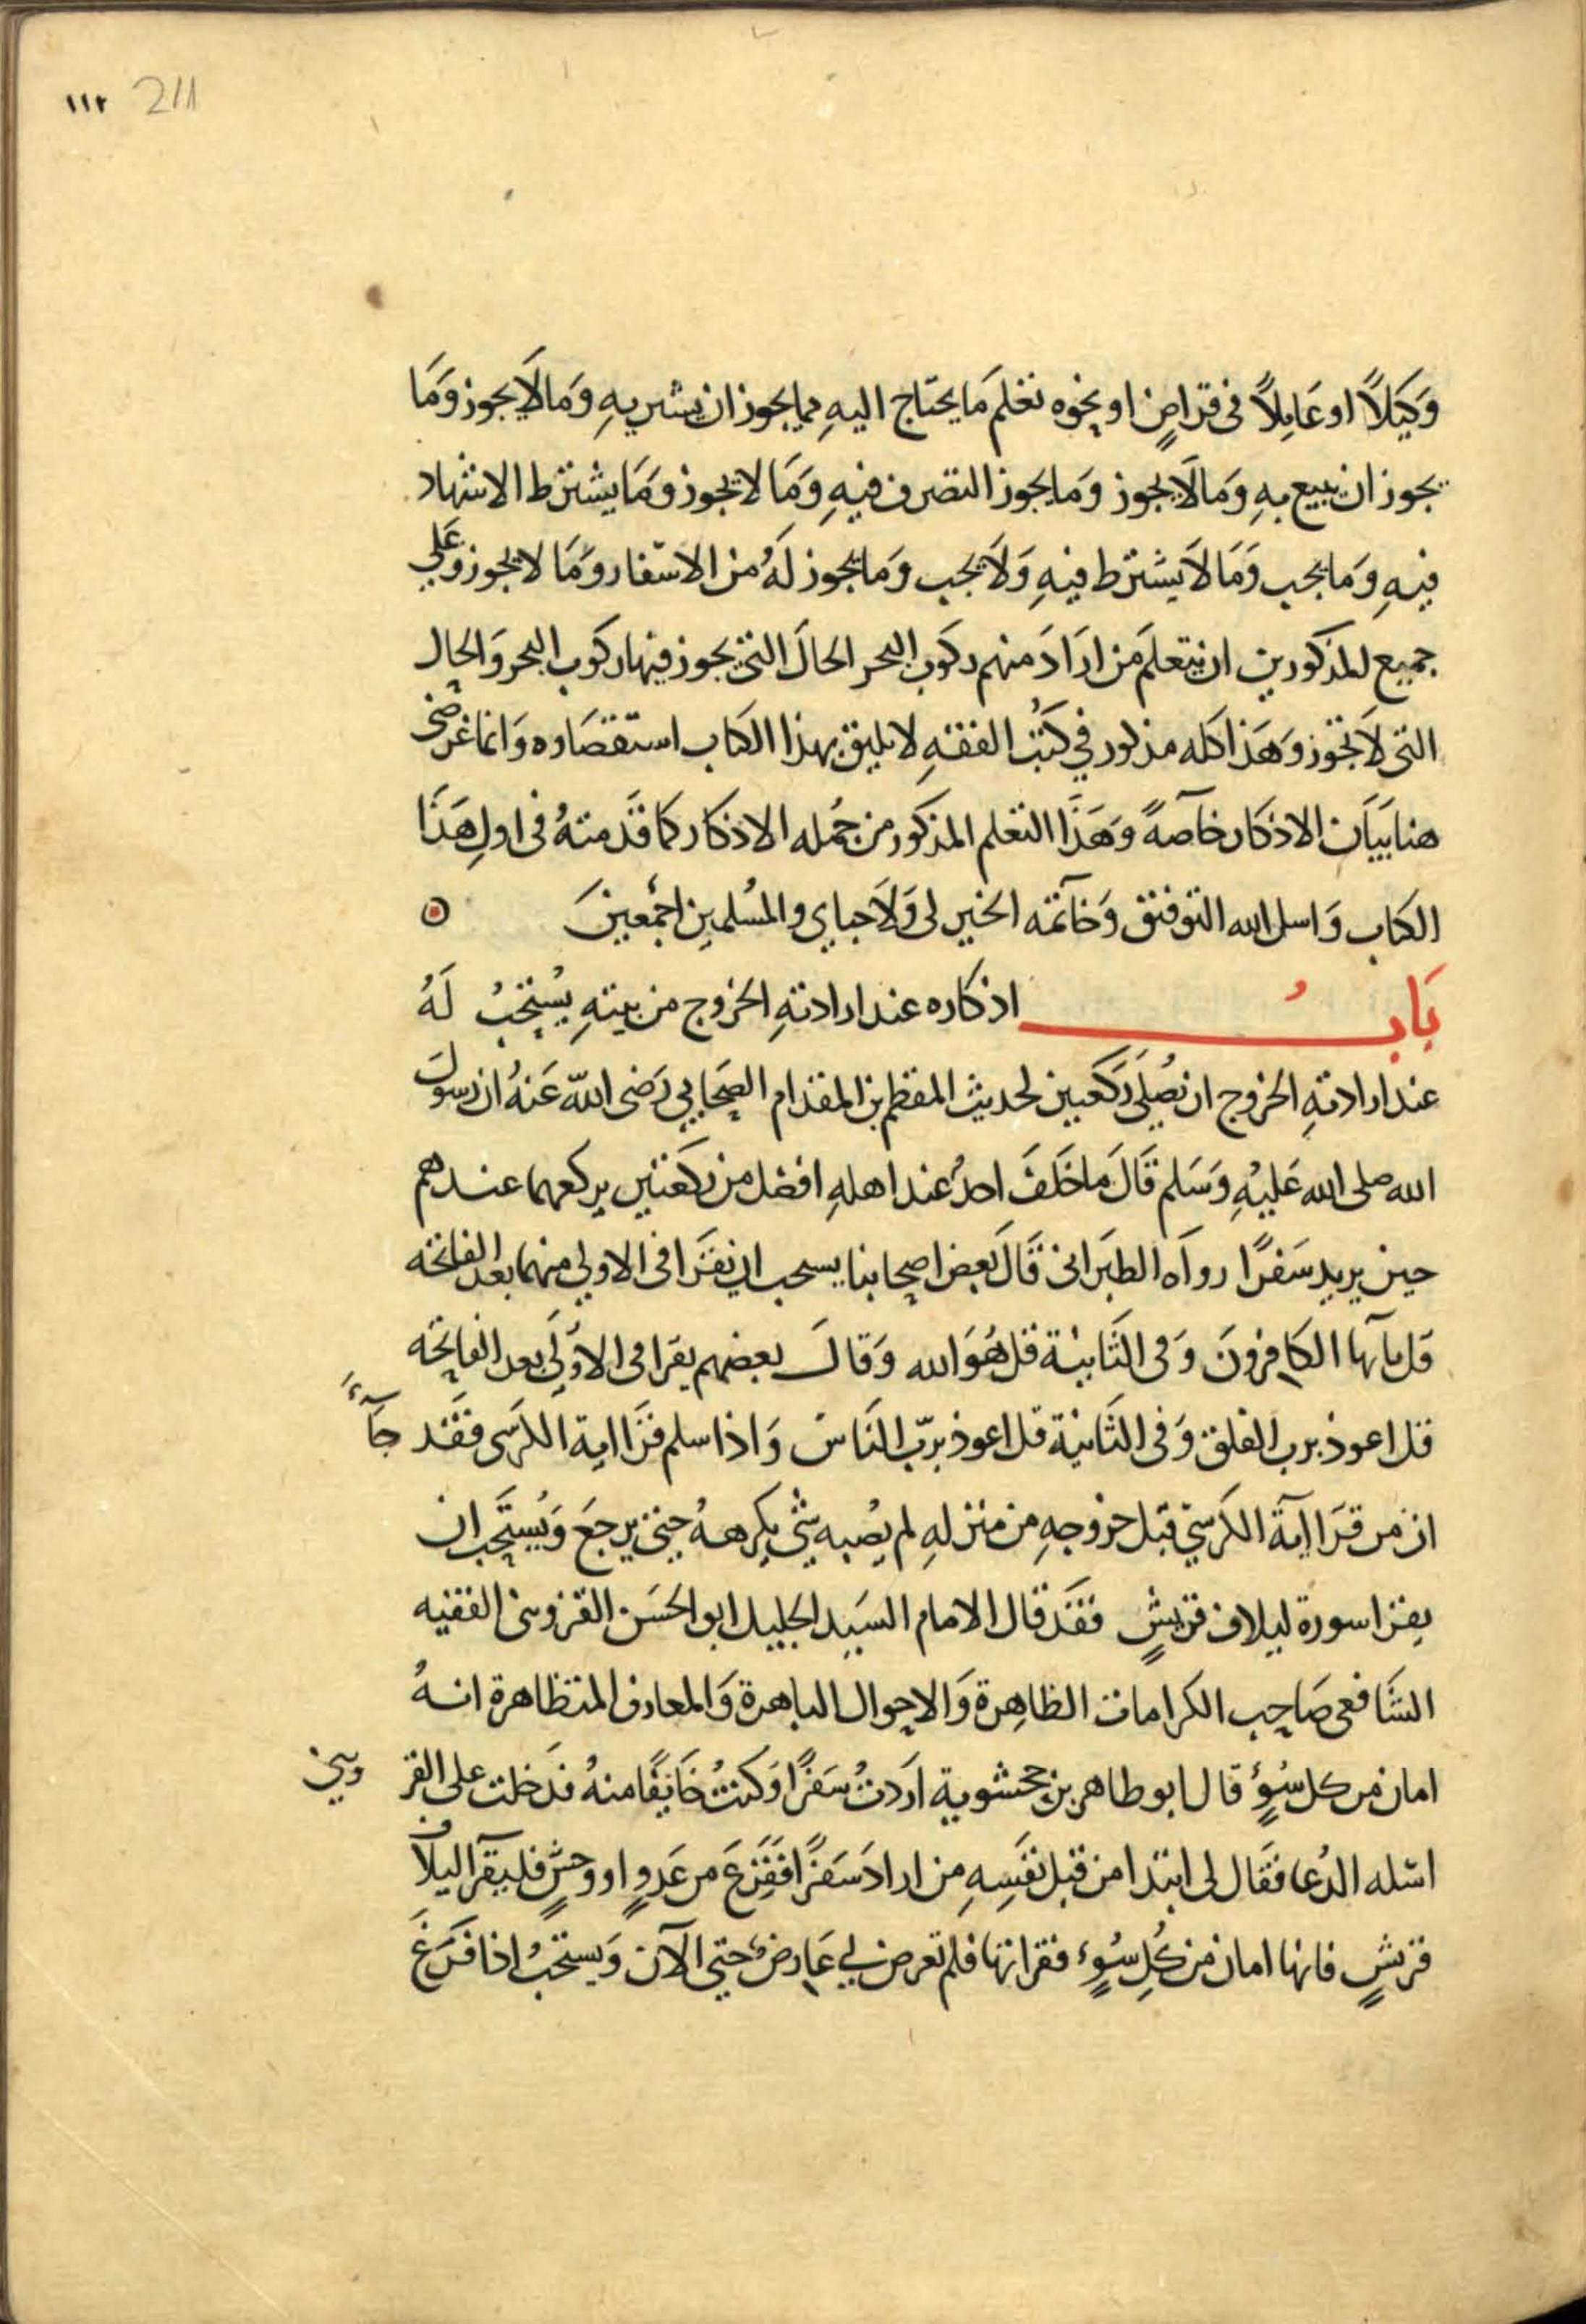 ١١٢ 211
وَكِيَلاً او عَامِلاً فى قراضٍ او نحوه تعلمَ مَا يحتاج اليهِ مما يجوز ان يشتريهِ وَمَا لاَ يجوز وَمَا
يجوز ان يبيع بهِ وَمَا لاَ يجوز وَمَا يجوز التصرف فيهِ وَمَا لا يجوز وَمَا يشترط الاشهاد
فيهِ وَمَا يجب وَمَا لاَ يشترط فيهِ وَلاَ يجب وَمَا يجوز لَهُ من الاسْفار وَمَا لا يجوز وَعَلي
جميع المذكورين ان يتعلمَ مَن ارَادَ منهم ركوبَ البحر الحالَ التى يجوز فيها ركوب البحر وَالحال
التى لاَ تجوز وَهَذا كله مذكور في كتُب الفقهِ لا يليق بهذا الكتاب استقصَاوه وَانما غرضى
هنا بَيَان الاذكار خاصةً وَهَذَا التعلم المذكور من جُمله الاذكار كما قدَمتهُ فى اولِ هَذَا
الكتاب وَاسل الله التوفيق وَخاتمَه الخير لى وَلاَحباي والمسُلمين اجمْعينَ
بَابُ اذكاره عند ارادتهِ الخروج من بيتهِ يُستحبُ لَهُ
عند ارادتهِ الخروج ان يُصلىَ ركَعتين لحديث المقطم بن المقدام الصحَابي رَضى اللّه عَنهُ ان رسولَ
الله صلى الله عَليْهِ وَسَلم قَالَ مَا خَلَفَ احدٌ عند اهلهِ افضل من ركعَتين يركعهما عندهم
حين يريد سَفرًا رواَه الطبَرانى قَالَ بعض اصحابنا يسحب ان يقرَا فى الاولي منهما بعد الفاتحه
قل يآيها الكافِرونَ وَفى الثَانِيْة قل هُوَ الله وَقالَ بعضهم يقرَا فى الاوُلي بعد الفاتحه
قل اعوذ برب الفلق وَفى الثَانية قل اعوذ برَبّ النَاسَ وَاذا سلم قرَا اية الكرسَى فقَد جَآءً
ان من قرَا ايَة الكرسيّ قبَل خروجهِ من منزلهِ لم يُصبه شى يكرههُ حتي يرجعَ وَيُستَحب ان
يقرا سورة ليلاف قريشٍ فقَد قال الامام السَيد الجليل ابو الحسَن القزوينى الفقيه
الشَافعى صَاحِب الكرامات الظاهِرة وَالاحوال الباهرة وَالمعارف المتظاهرة انهُ
امان من كل سُوٍءٍ قال ابو طاهر بن جحشوية ارَدتُ سَفرًا وَكنتُ خَائفًا منهُ فدَخلت على القزويني
اسْله الدُعا فقَال لى ابتدا من قبل نفَسِهِ من ارادَ سَفَرًا ففَزعَ من عَدوٍ او وحشٍ فليقرَا ليلاَف
قريشٍ فانها امان من كُلِ سُوٍءٍ فقرَاتها فلم تعرض لي عَارِضٌ حتي الآن وَيستحبُ اذا فرَغَ